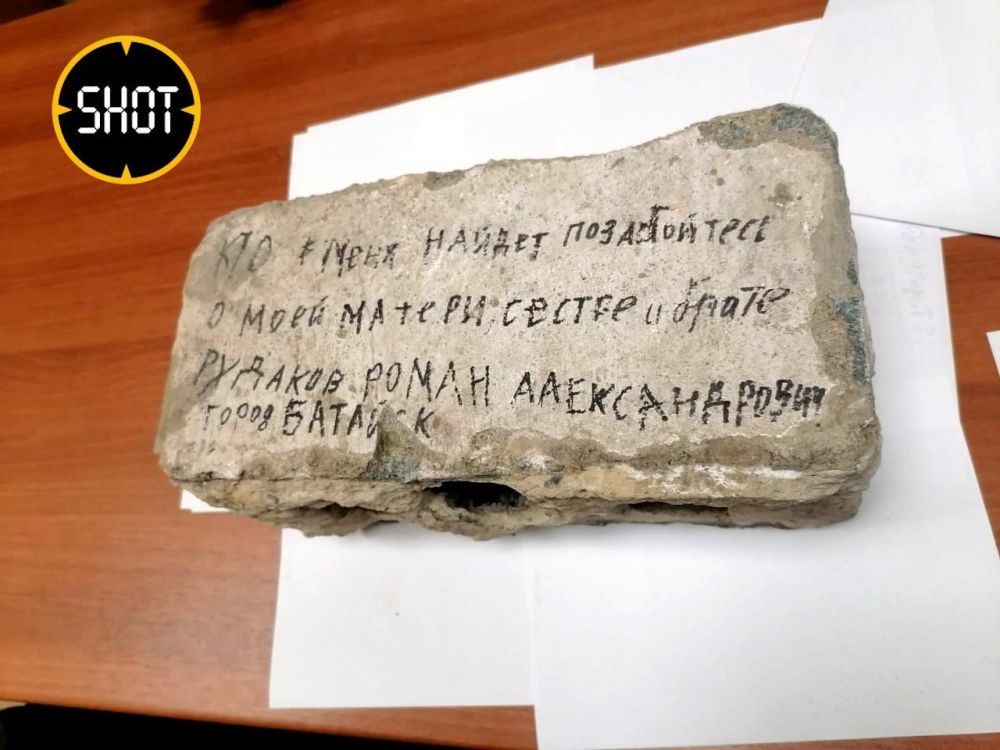 SHOT
КТО меня НАЙДЕТ ПОЗАБОТЬТЕСЬ
О МОЕЙ МАТЕРИ, СЕСТРЕ и брате
РУДАКОВ РОМАН АЛЕКСАНДРОВИЧ
ГОРОД БАТАЙСК